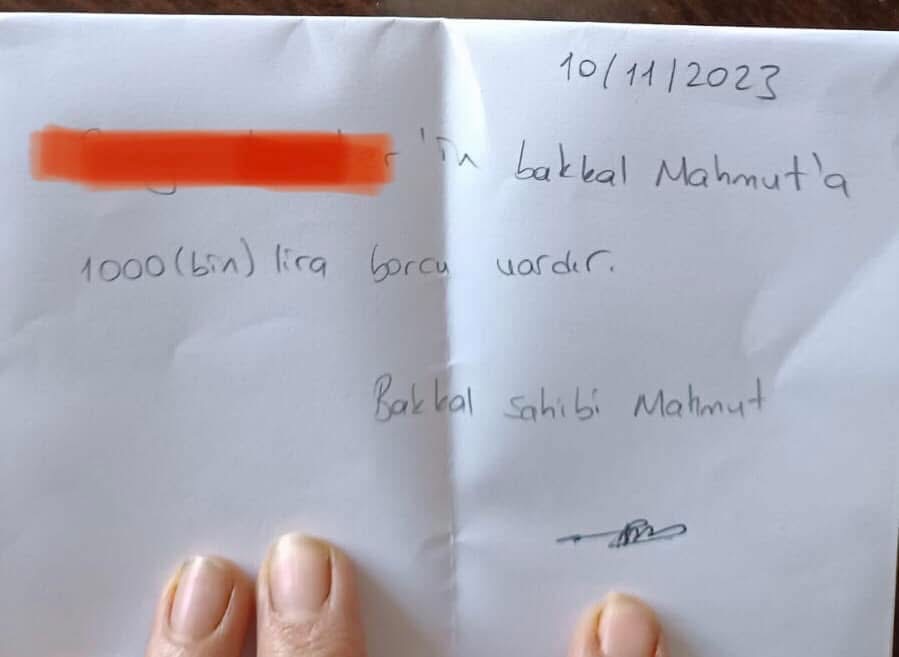 10/11/2023
'in bakkal Mahmut'a
1000(bin) lira borcu vardır.
Bakkal sahibi Mahmut